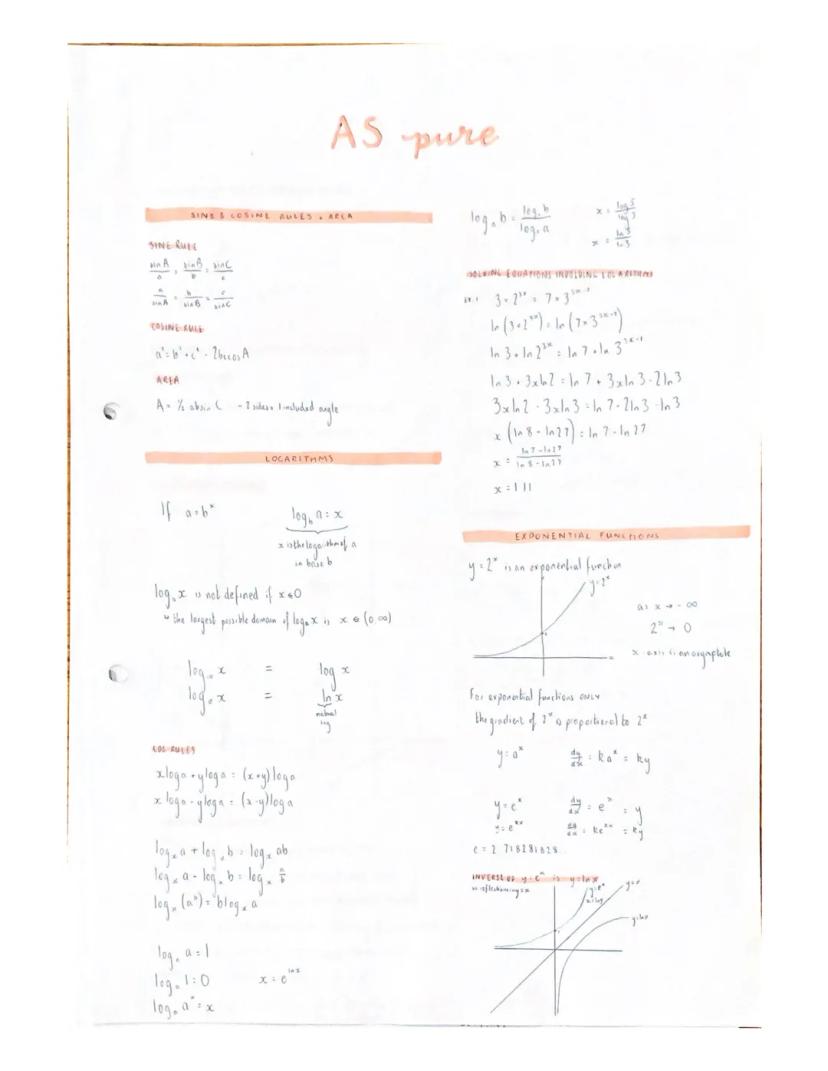 AS pure
SINE & COSINE RULES + AREA
SINE RULE
sinA/a = sinB/b = sinC/c
a/sinA = b/sinB = c/sinC
COSINE RULE
a² = b² + c² - 2bccosA
AREA
A = ½ absin C - 2 sides + 1 included angle
LOGARITHMS
If a = bˣ
log_b a = x
x is the logarithm of a
in base b
logₐx is not defined if x ≤ 0
↳ the largest possible domain of logₐx is x ∈ (0,∞)
log₁₀ x = log x
logₑ x = ln x
natural
log
LOG RULES
xloga + yloga = (x+y)loga
x loga - yloga = (x-y)loga
logₓa + logₓb = logₓ ab
logₓa - logₓb = logₓ a/b
logₓ(aᵇ) = blogₓa
logₐ a = 1
logₐ 1 = 0 x = e^lnx
logₐ aˣ = x
logₐ b = log_c b / log_c a
x = log 5 / log 3
x = ln 5 / ln 3
SOLVING EQUATIONS INVOLVING LOGARITHMS
ex. 1 3 × 2³ˣ = 7 × 3³ˣ⁻²
ln(3 × 2³ˣ) = ln(7 × 3³ˣ⁻²)
ln 3 + ln 2³ˣ = ln 7 + ln 3³ˣ⁻²
ln 3 + 3xln2 = ln 7 + 3xln 3 - 2ln3
3xln2 - 3xln3 = ln 7 - 2ln3 - ln3
x (ln 8 - ln27) = ln 7 - ln 27
x = ln 7 - ln27 / ln 8 - ln27
x = 1.11
EXPONENTIAL FUNCTIONS
y = 2ˣ is an exponential function
y = 2ˣ
as x → -∞
2ˣ → 0
x-axis is an asymptote
For exponential functions ONLY
the gradient of 2ˣ is proportional to 2ˣ
y = aˣ dy/dx = kaˣ = ky
y = eˣ dy/dx = eˣ = y
y = eᵏˣ dy/dx = keᵏˣ = ky
e = 2.718281828...
INVERSE OF y = eˣ is y = lnx
y = eˣ
x = lny
y = x
y = lnx